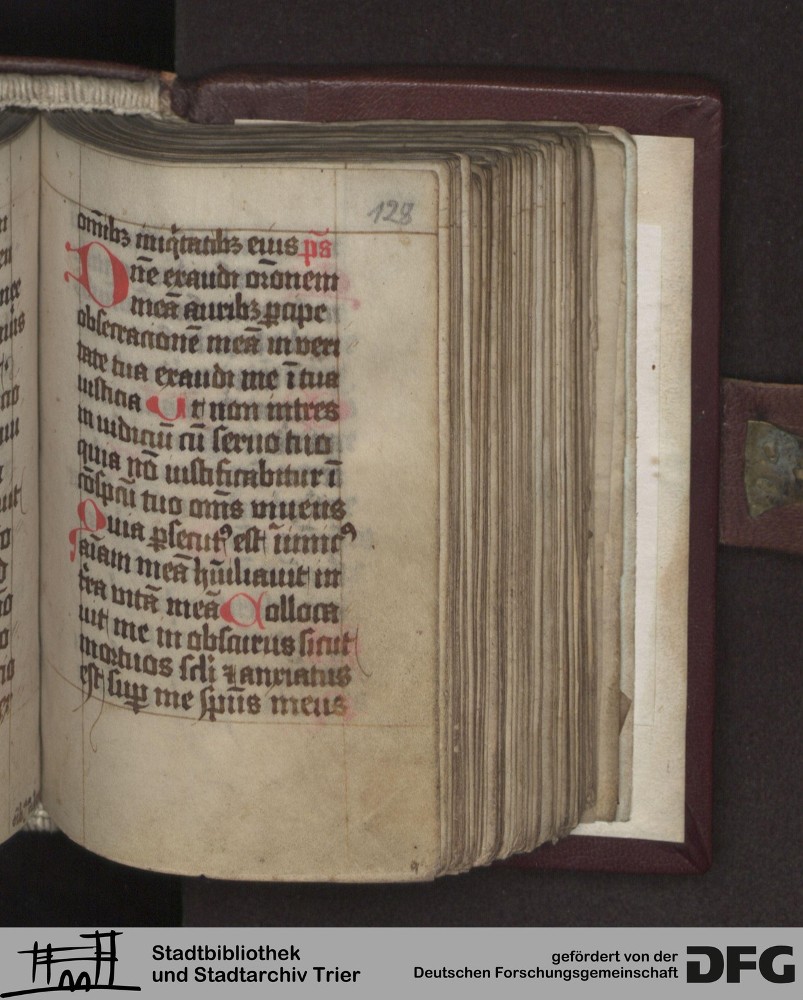 128
om̄ibꝫ iniq̄tatibꝫ eius p̄s
Dn̄e exaudi or̄onem
meā auribꝫ ꝑcipe
obsecracionē meā in veri
tate tua exaudi me ī tua
iusticia Et non intres
in iudiciū cū seruo tuo
quia nō iustificabitur ī
cōspcū tuo om̄s viuens
Quia ꝑsecutꝰ est inimicꝰ
aīam meā hūiliauit in
tr̄a vitā meā Colloca
uit me in obscuris sicut
mortuos scl̄i ⁊ anxiatus
est suꝑ me sp̄us meus
Stadtbibliothek
und Stadtarchiv Trier
gefördert von der
Deutschen Forschungsgemeinschaft
DFG